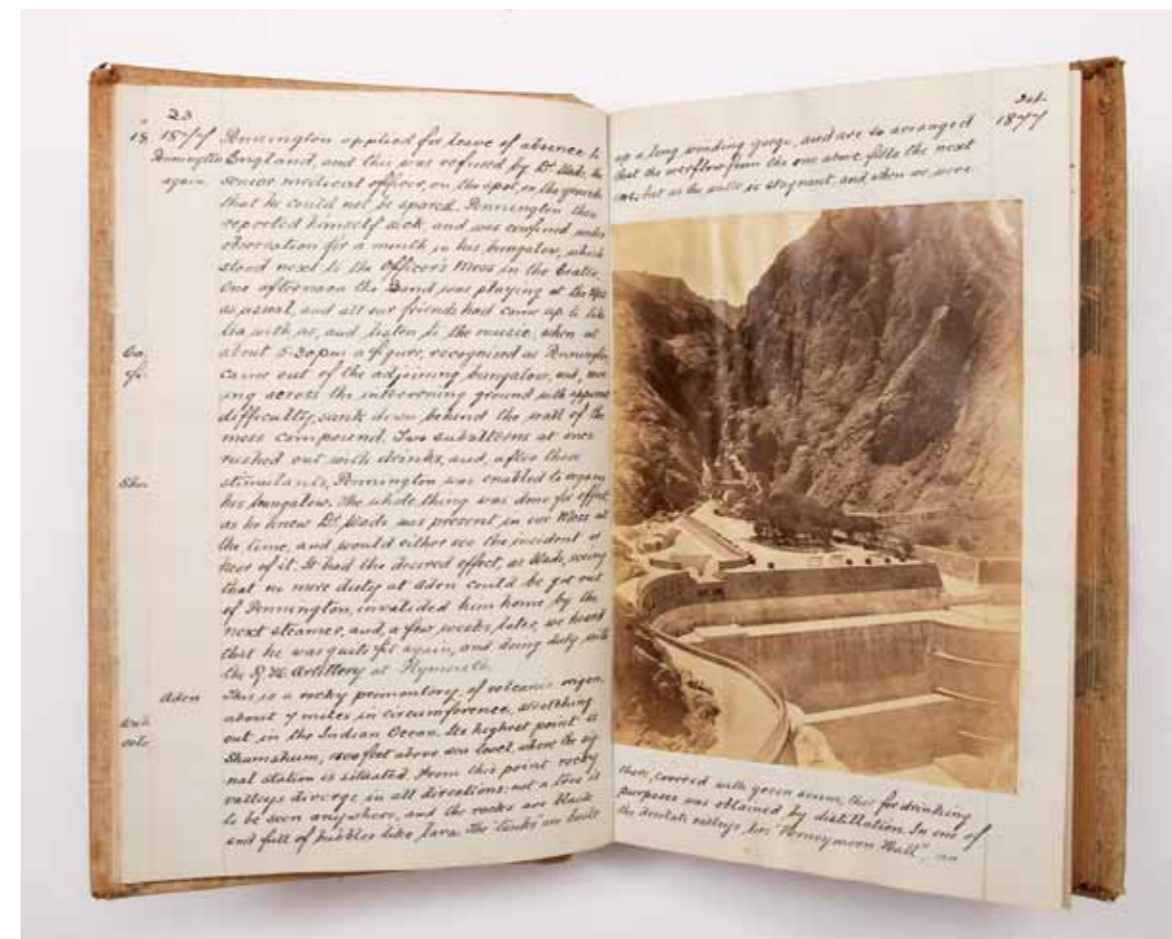 23
18 1877 Pennington applied for leave of absence to
Pennington England, and this was refused by Dr. Wade, the
again senior medical officer, on the spot, on the grounds
that he could not be spared. Pennington then
reported himself sick, and was confined under
observation for a month in his bungalow, which
stood next to the Officer's Mess in the Crater.
One afternoon the Band was playing at the Mess
as usual, and all our friends had come up to take
tea with us, and listen to the music, when at
about 5.30 pm a figure, recognised as Pennington
came out of the adjoining bungalow, and, mov
ing across the intervening ground with apparent
difficulty, sank down behind the wall of the
mess compound. Two subalterns at once
rushed out with drinks, and, after these
stimulants, Pennington was enabled to regain
his bungalow. The whole thing was done for effect
as he knew Dr. Wade was present in our Mess at
the time, and would either see the incident or
hear of it. It had the desired effect, as Wade, seeing
that no more duty at Aden could be got out
of Pennington, invalided him home by the
next steamer, and, a few weeks later, we heard
that he was quite fit again, and doing duty with
the R. H. Artillery at Plymouth.
Aden This is a rocky promontory, of volcanic origin
about 7 miles in circumference, stretching
out in the Indian Ocean. Its highest point is
Shumshum, feet above sea level, where the sig
nal station is situated. From this point rocky
valleys diverge in all directions: not a tree is
to be seen anywhere, and the rocks are black
and full of bubbles like lava. The "tanks" are built
1877
up a long winding gorge, and are so arranged
that the overflow from the one above fills the next
one, but as the water is stagnant, and when we were
there, covered with green scum, that for drinking
purposes was obtained by distillation. In one of
the desolate valleys lies "Honeymoon Hall", an